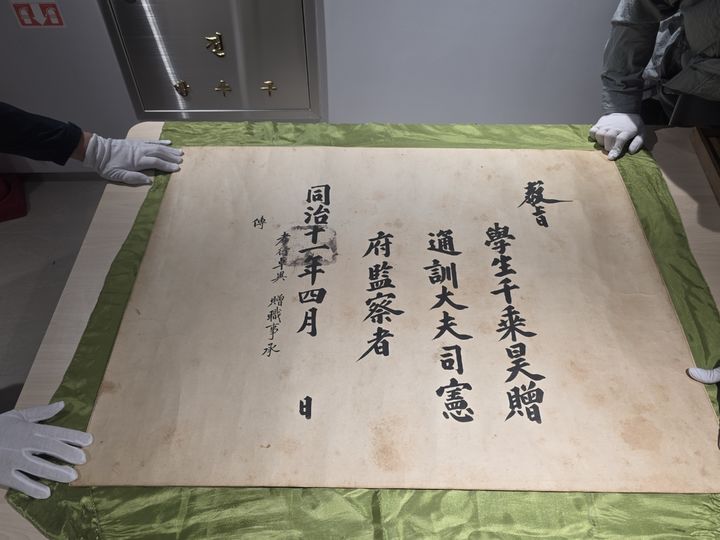 敎旨
學生千乘昊贈
通訓大夫司憲
府監察者
同治十一年四月 日
孝 卓異 贈職事承
傳